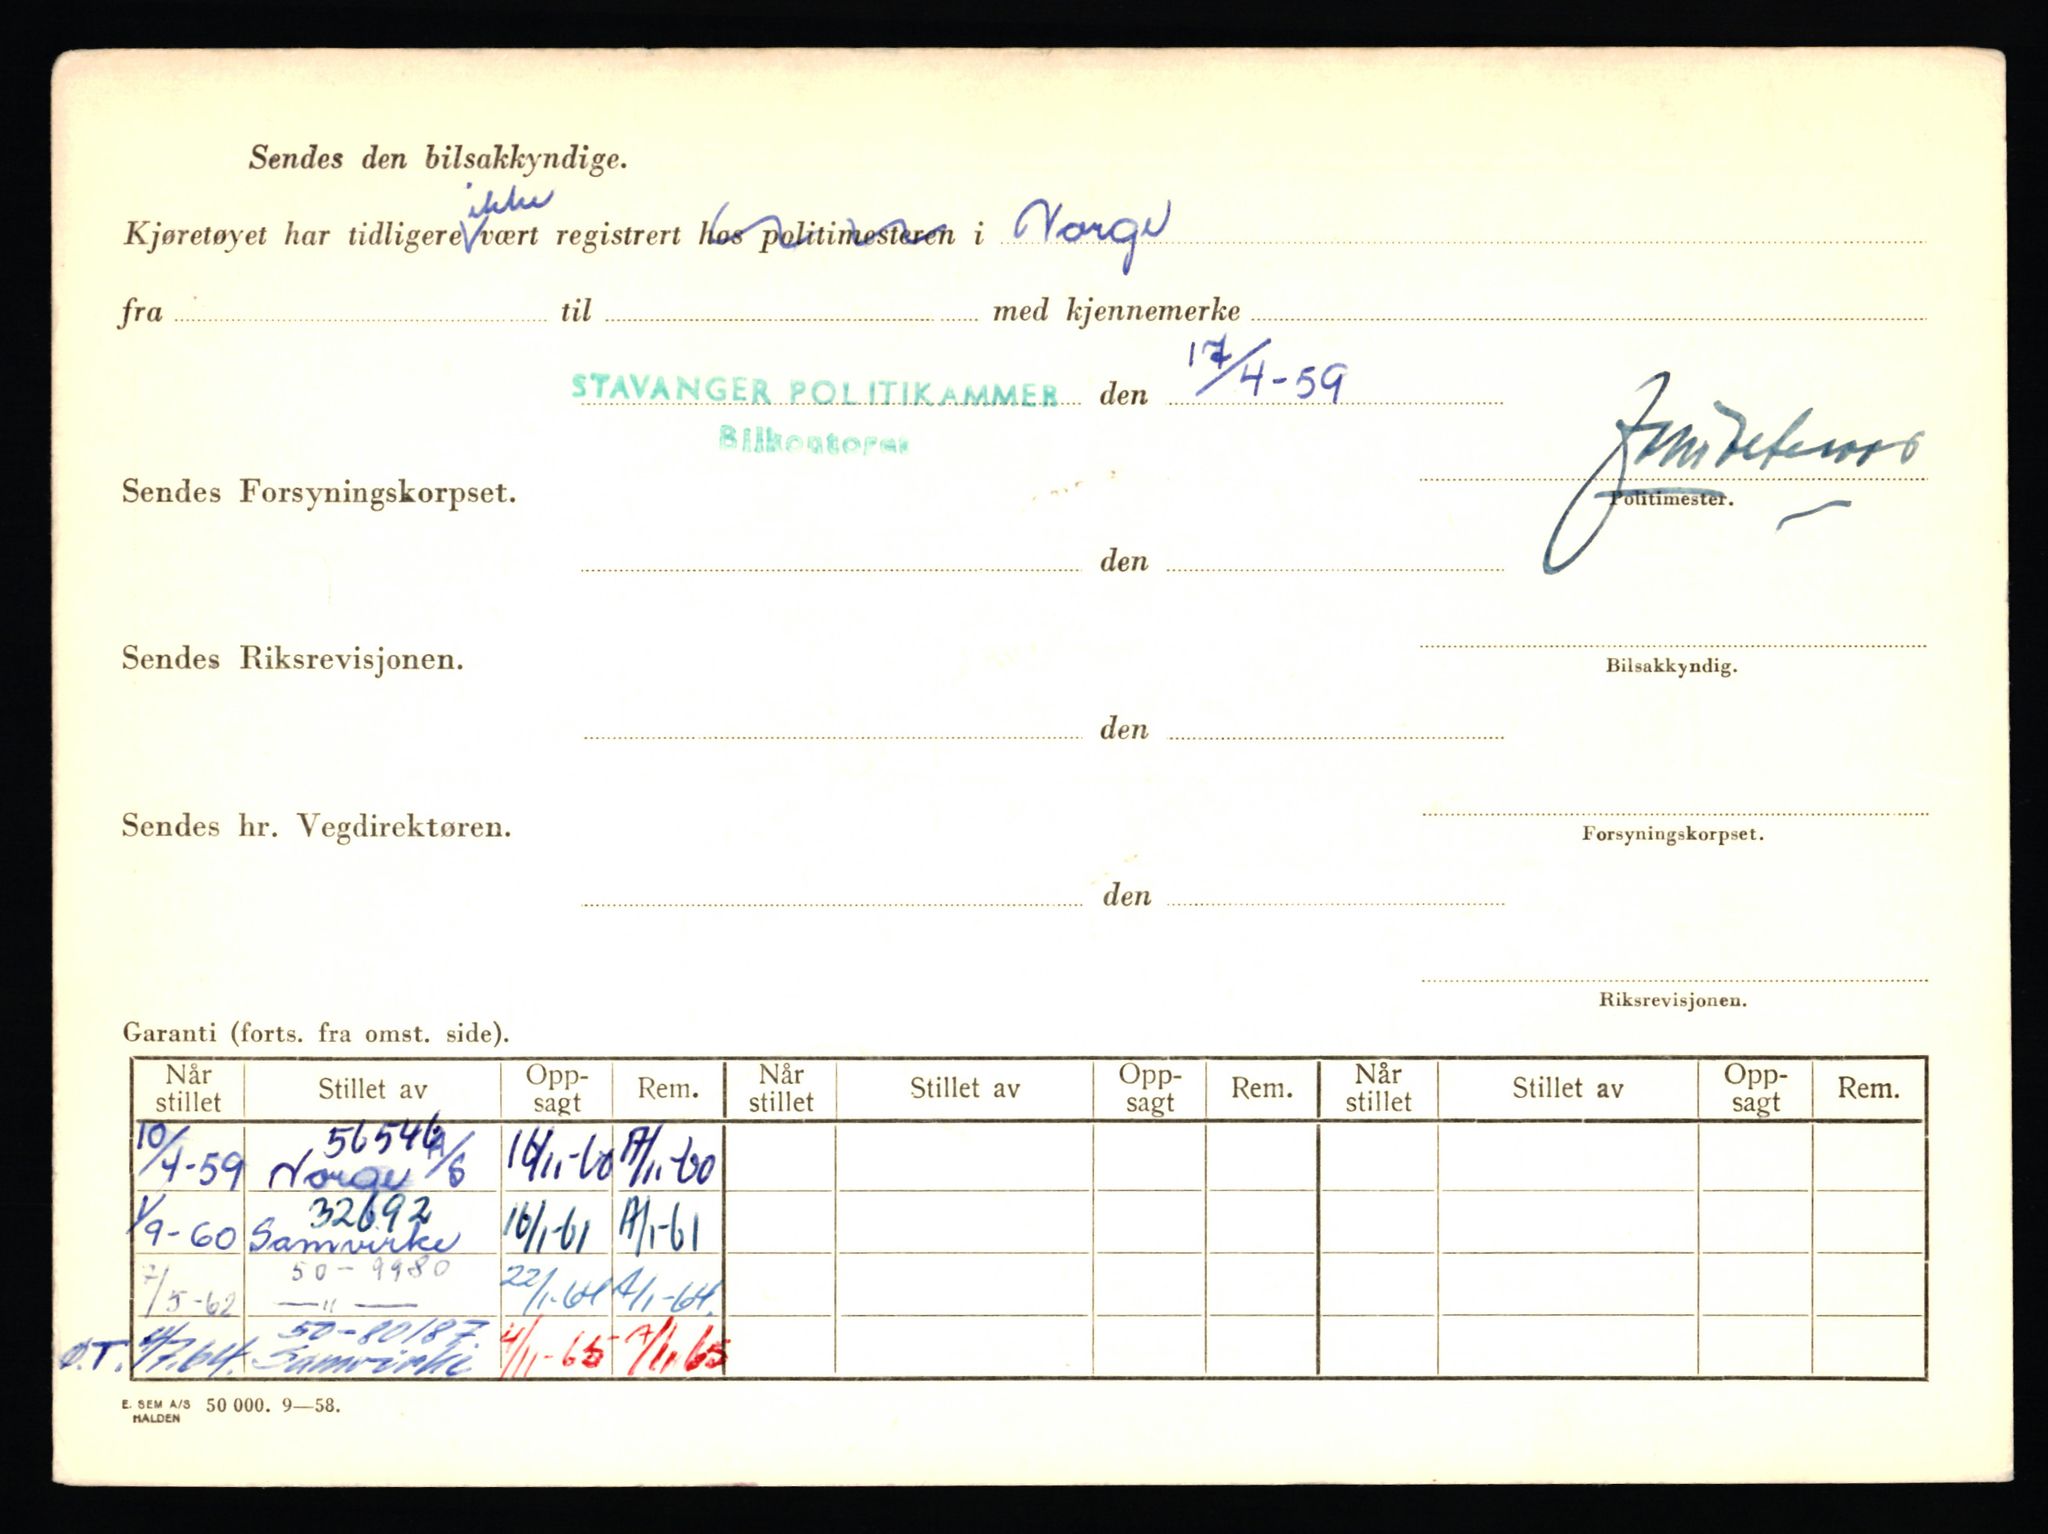 Sendes den bilsakkyndige.
ikke
Kjøretøyet har tidligere vært registrert hos politimesteren i Norge
fra til med kjennemerke
STAVANGER POLITIKAMMER den 17/4-59
Bilkontoret
Sendes Forsyningskorpset.
Politimester.
den
Sendes Riksrevisjonen.
Bilsakkyndig.
den
Sendes hr. Vegdirektøren.
Forsyningskorpset.
den
Riksrevisjonen.
Garanti (forts. fra omst. side).
Når stillet Stillet av Opp-sagt Rem. Når stillet Stillet av Opp-sagt Rem. Når stillet Stillet av Opp-sagt Rem.
56546
10/4-59 Norge A/S 16/11-60 17/11-60
32692
1/9-60 Samvirke 16/1-61 17/1-61
50-9980
7/5-62 —"— 22/1-64 /1-64.
50-80187
Ø.T. /7.64. Samvirke 4/11-65 7/11.65
E. SEM A/S HALDEN 50 000. 9—58.